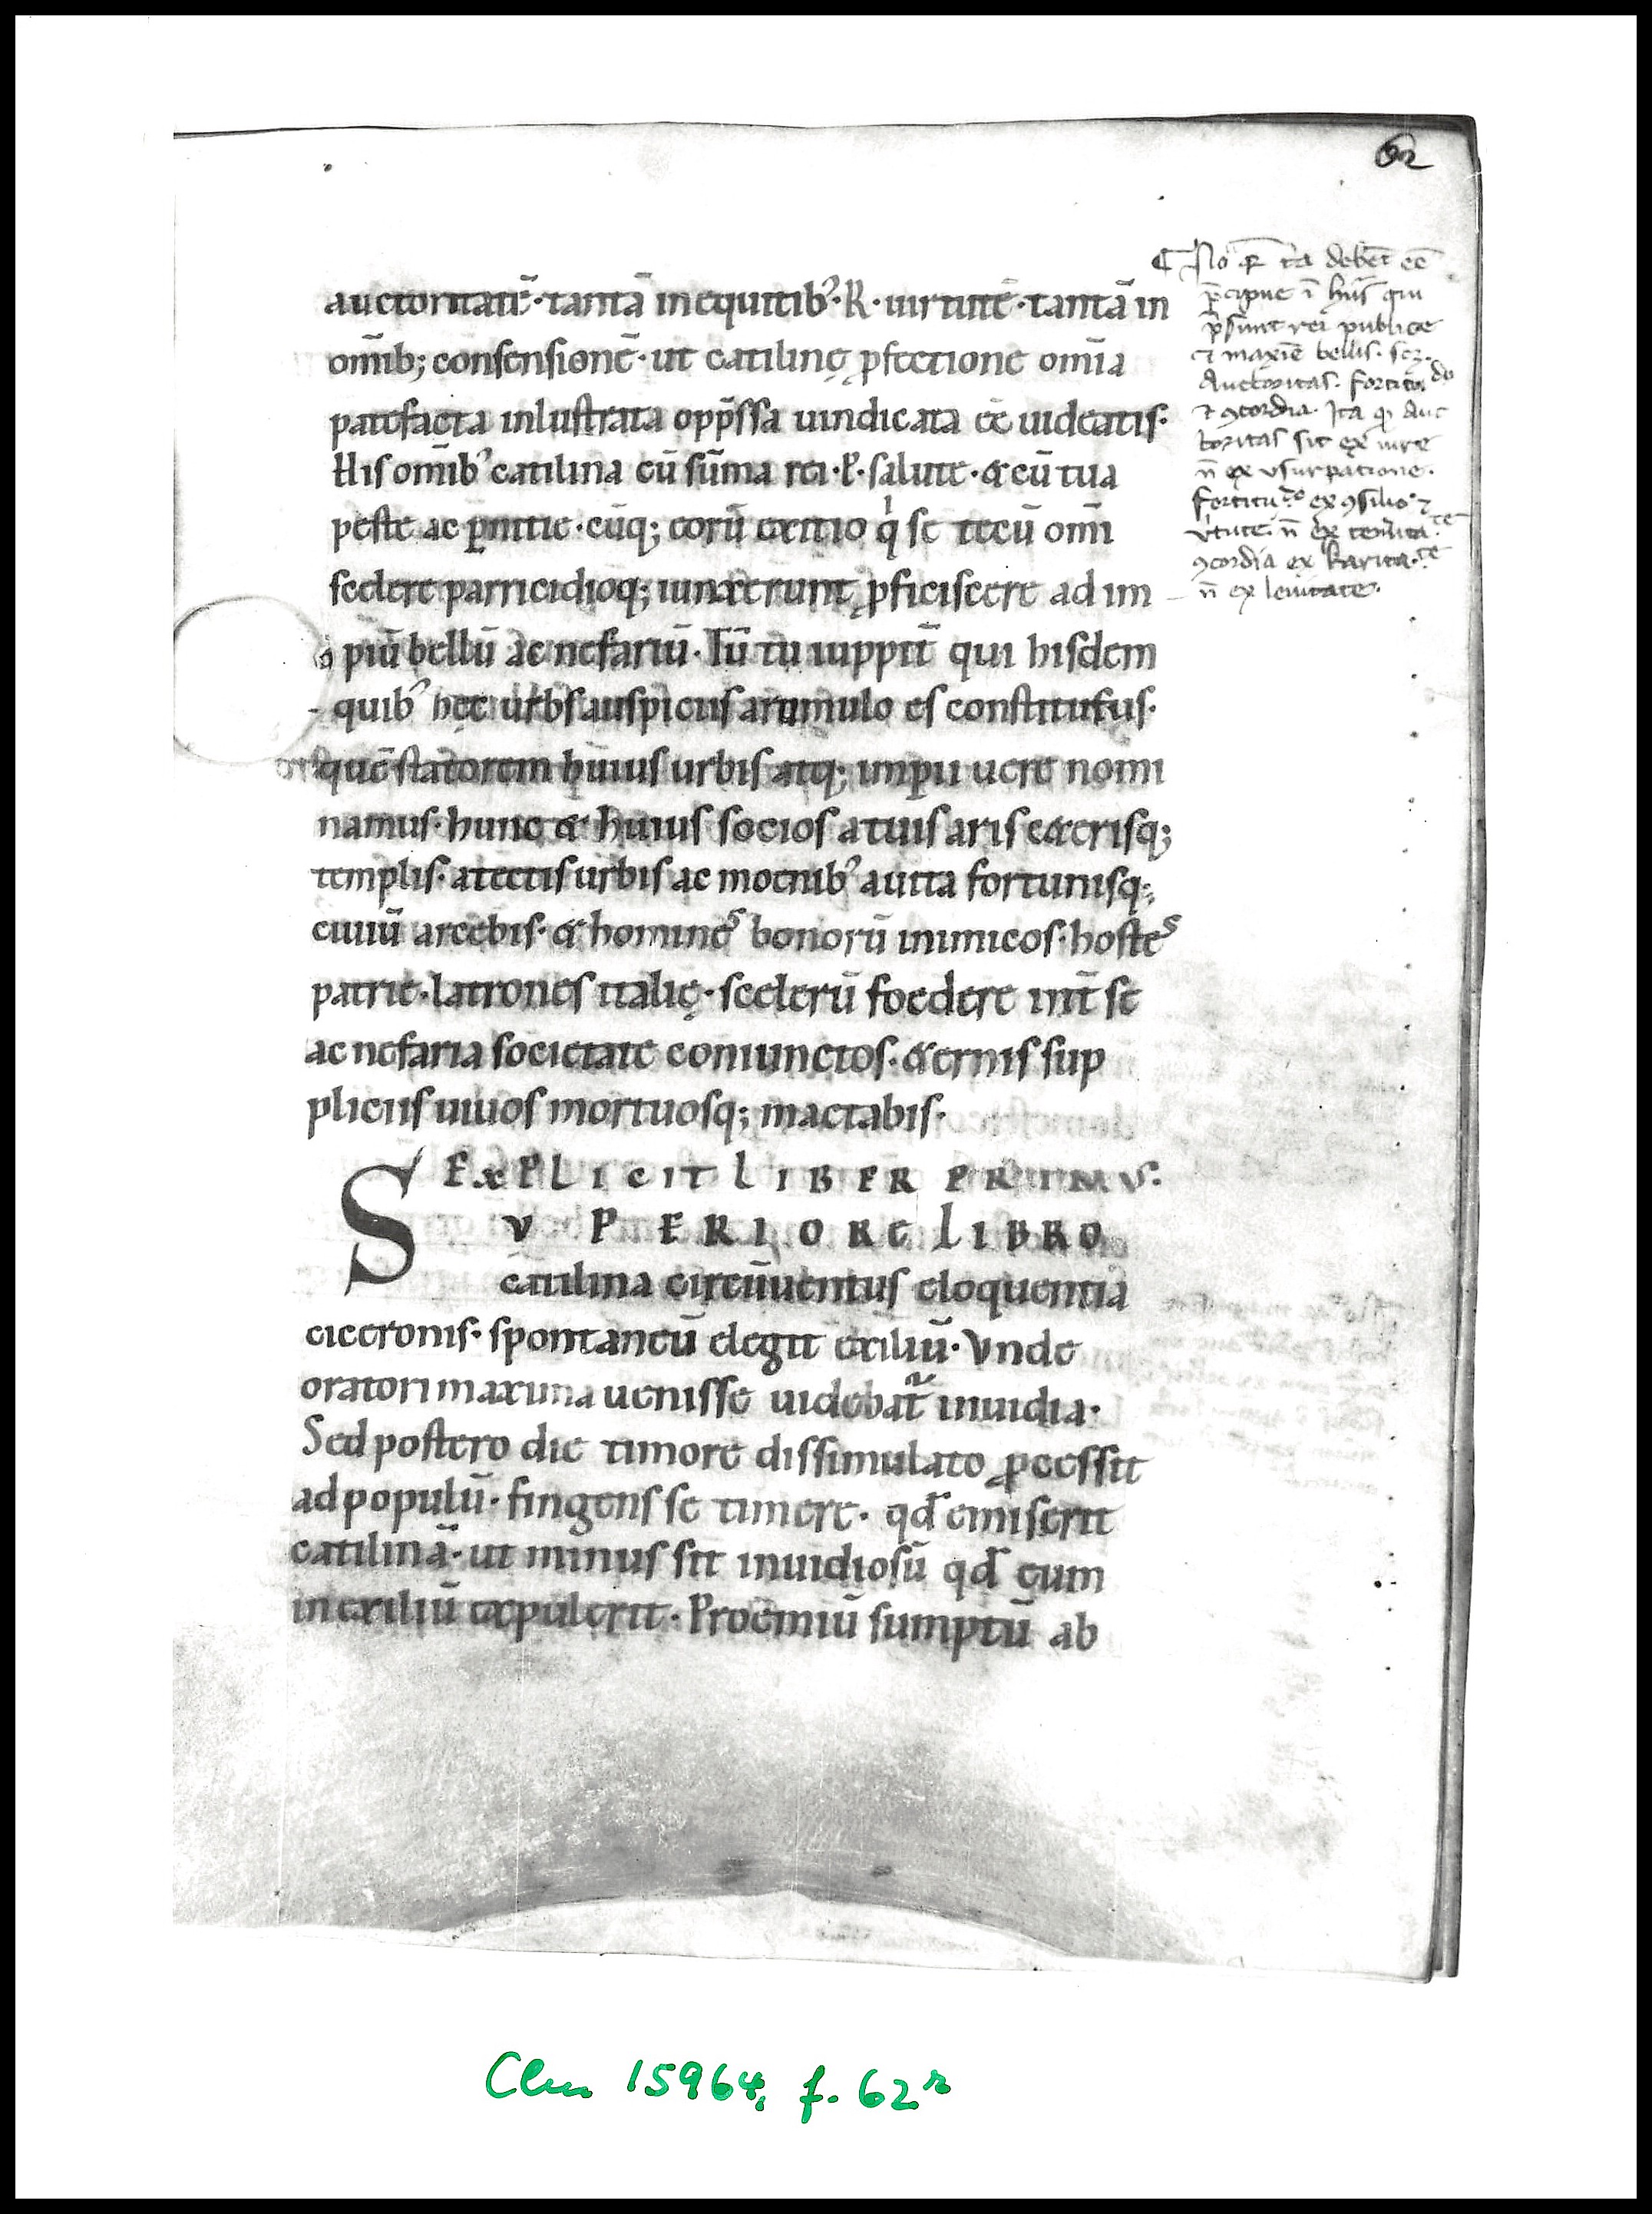 62
auctoritatē·tantā in equitib᾽·R·uirtutē·tantā in
om̄ib; consensionē·ut catilinę ꝓfectione om̄ia
patefacta inlustrata opp̄ssa uindicata eē uideatis·
His om̄ib᾽ catilina cū sūma rei·P·salute·& cū tua
peste ac ꝑnitie·cūq; eorū exitio qͥ se tecū om̄i
scelere parricidioq; iunxerunt ꝓficiscere ad im
piū bellū ac nefariū·Tū tu iuppit̄ qui hisdem
quib᾽ hęc urbs auspiciis aromulo es constitutus·
quē statorem huius urbis atq; imꝑii uere nomi
namus·hunc & huius socios atuis aris c&erisq;
templis·atectis urbis ac moenib᾽ auita fortunisq;
ciuiū arcebis·& homines bonorū inimicos·hostes
patrie·latrones italię·scelerū foedere int̄ se
ac nefaria societate coniunctos·&ernis sup
pliciis uiuos mortuosq; mactabis·
EXPLICIT LIBER PRIMVS·
SVPERIORE LIBRO
catilina circūuentus eloquentia
ciceronis·spontaneū elegit exiliū·Vnde
oratori maxima uenisse uidebat̄ inuidia·
Sed postero die timore dissimulato ꝓcessit
ad populū·fingens se timere·qđ emiserit
catilinā·ut minus sit inuidiosū qđ eum
in exiliū expulerit·Proemiū sumptū ab
¶ No qꝛ tͥa debēt eē
p̄cipue ī hiis qui
p̄sunt rei publice
et maxīe bellis· scꝫ·
Auctoritas· fortitudo
et ꝯcordia· Ita qꝫ Auc
toritas sit ex iure
n̄ ex vsurpatione·
fortitudo ex ꝯsilio et
v̓tute· n̄ ex tem̓itate
ꝯcordia ex karitate
n̄ ex leuitate·
Clm 15964, f. 62r